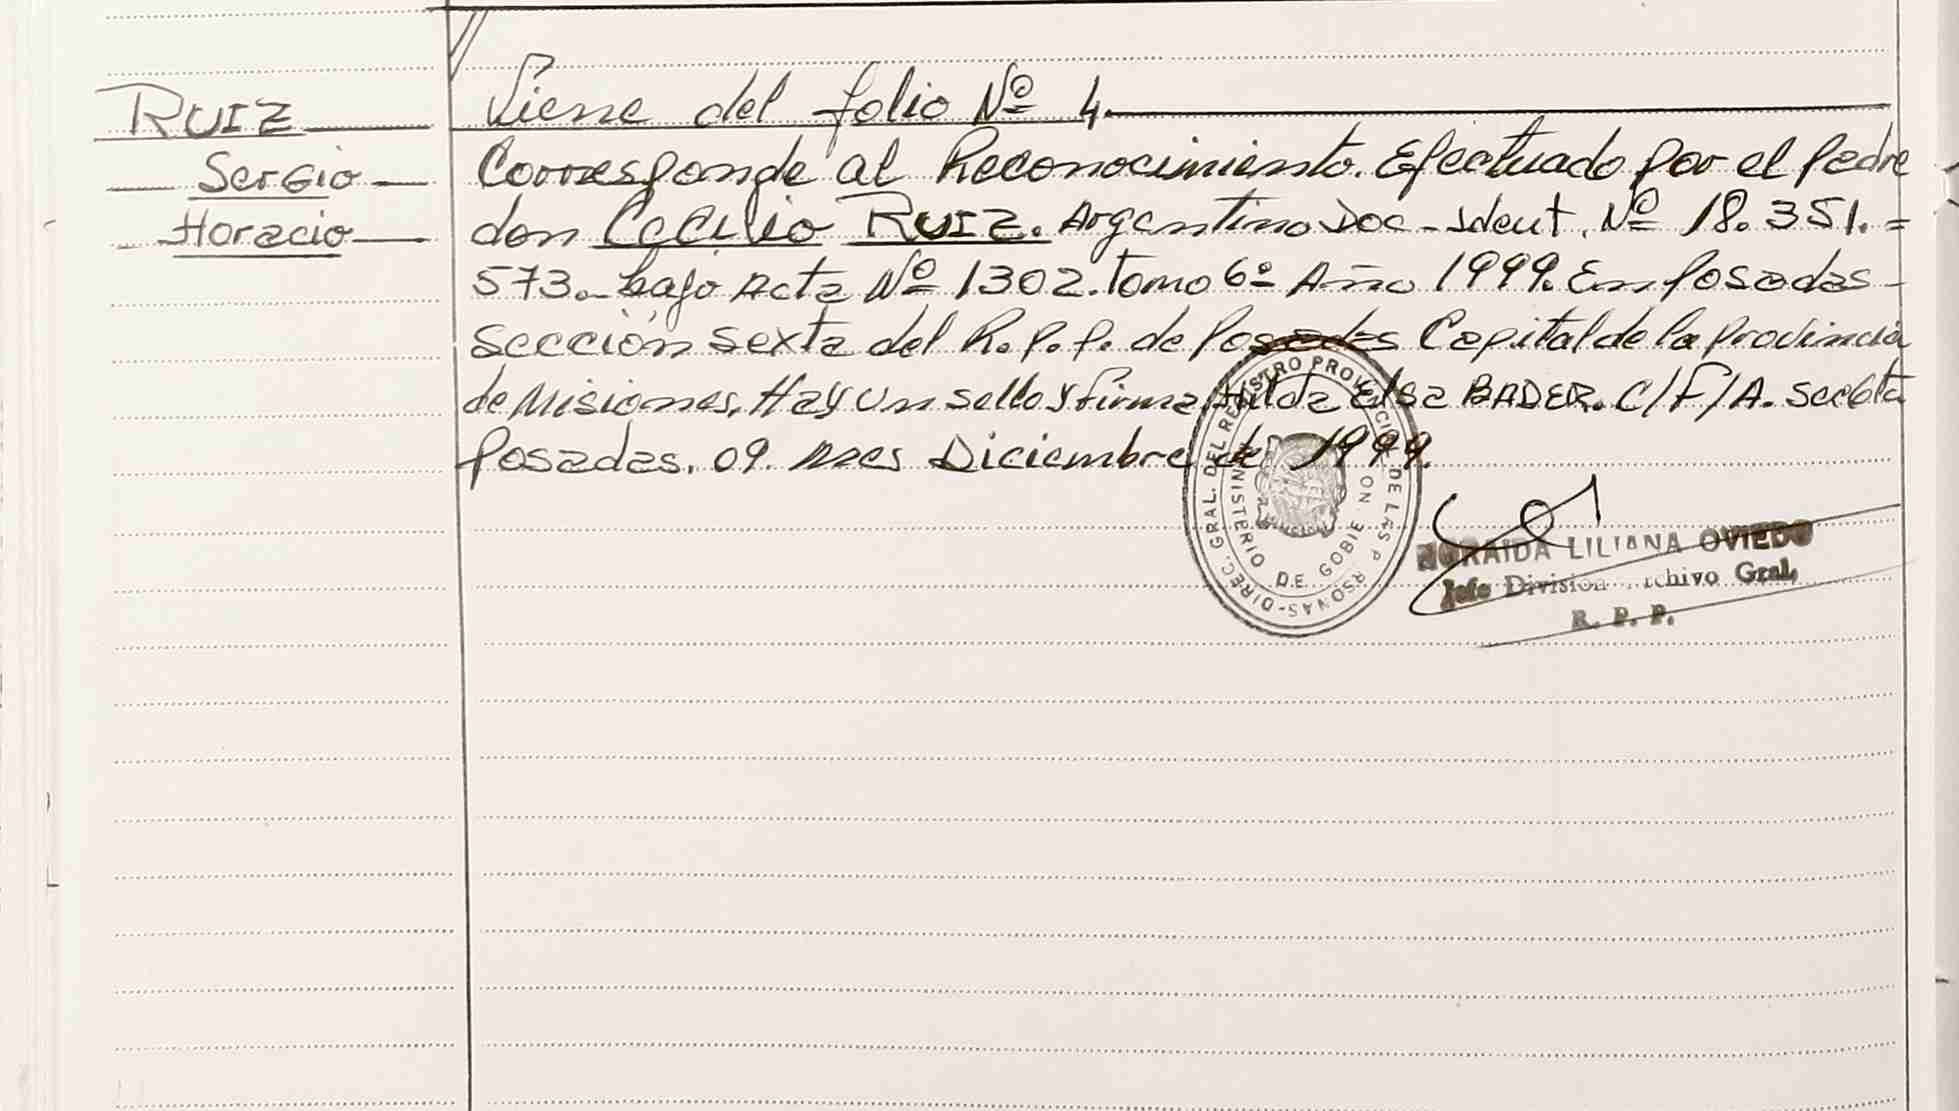 RUIZ
Sergio
Horacio
Viene del folio Nº 4.
Corresponde al Reconocimiento. Efectuado por el padre
don Cecilio RUIZ. Argentino Doc - Ident. Nº 18.351.=
573.- bajo Acta Nº 1302. tomo 6º Año 1999. En Posadas -
sección sexta del R.P.P. de Posadas Capital de la provincia
de Misiones, Hay un sello y firma, Hilda Elsa BADER. C/F/A.
Posadas. 09. mes Diciembre de 1999.
DIREC. GRAL. DEL REGISTRO PROVINCIAL DE LAS P RSONAS
MINISTERIO DE GOBIE NO
ORAIDA LILIANA OVIEDO
Jefe Division rchivo Gral.
R. P. P.